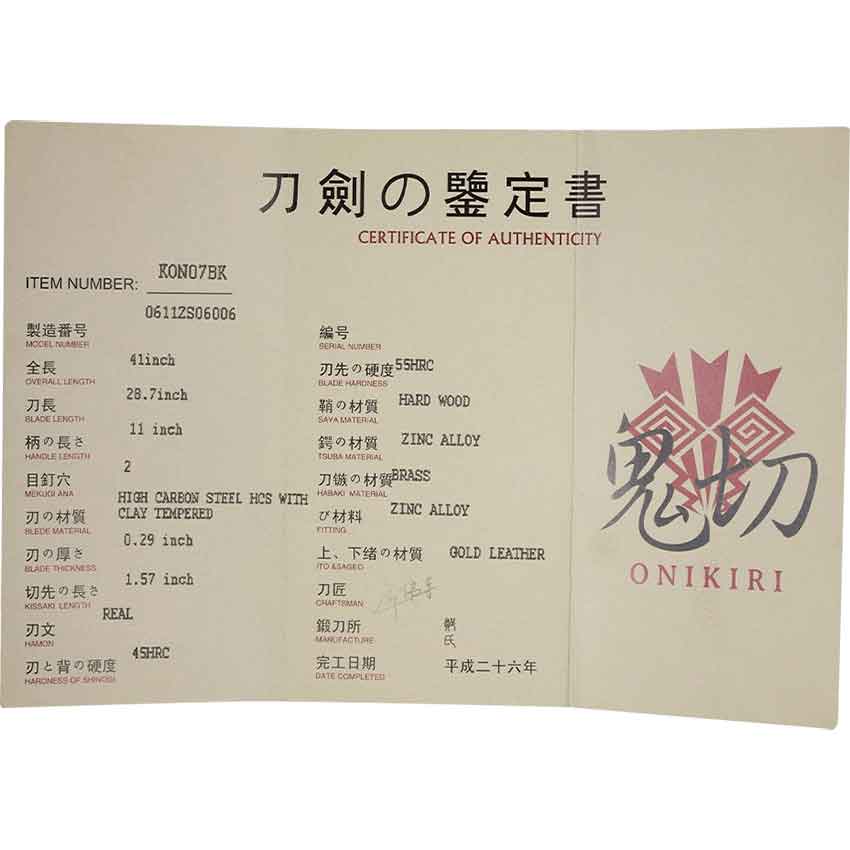 刀劍の鑒定書
CERTIFICATE OF AUTHENTICITY
ITEM NUMBER: KON07BK
製造番号 0611ZS06006
MODEL NUMBER
全長 41inch
OVERALL LENGTH
刀長 28.7inch
BLADE LENGTH
柄の長さ 11 inch
HANDLE LENGTH
目釘穴 2
MEKUGI ANA
刃の材質 HIGH CARBON STEEL HCS WITH CLAY TEMPERED
BLEDE MATERIAL
刃の厚さ 0.29 inch
BLADE THICKNESS
切先の長さ 1.57 inch
KISSAKI LENGTH
刃文 REAL
HAMON
刃と背の硬度 45HRC
HARDNESS OF SHINOGI
編号
SERIAL NUMBER
刃先の硬度 55HRC
BLADE HARDNESS
鞘の材質 HARD WOOD
SAYA MATERIAL
鍔の材質 ZINC ALLOY
TSUBA MATERIAL
刀鏃の材質 BRASS
HABAKI MATERIAL
び材料 ZINC ALLOY
FITTING
上、下绪の材質 GOLD LEATHER
ITO &SAGEO
刀匠
CRAFTSMAN
鍛刀所
MANUFACTURE
完工日期 平成二十六年
DATE COMPLETED
鬼切
ONIKIRI